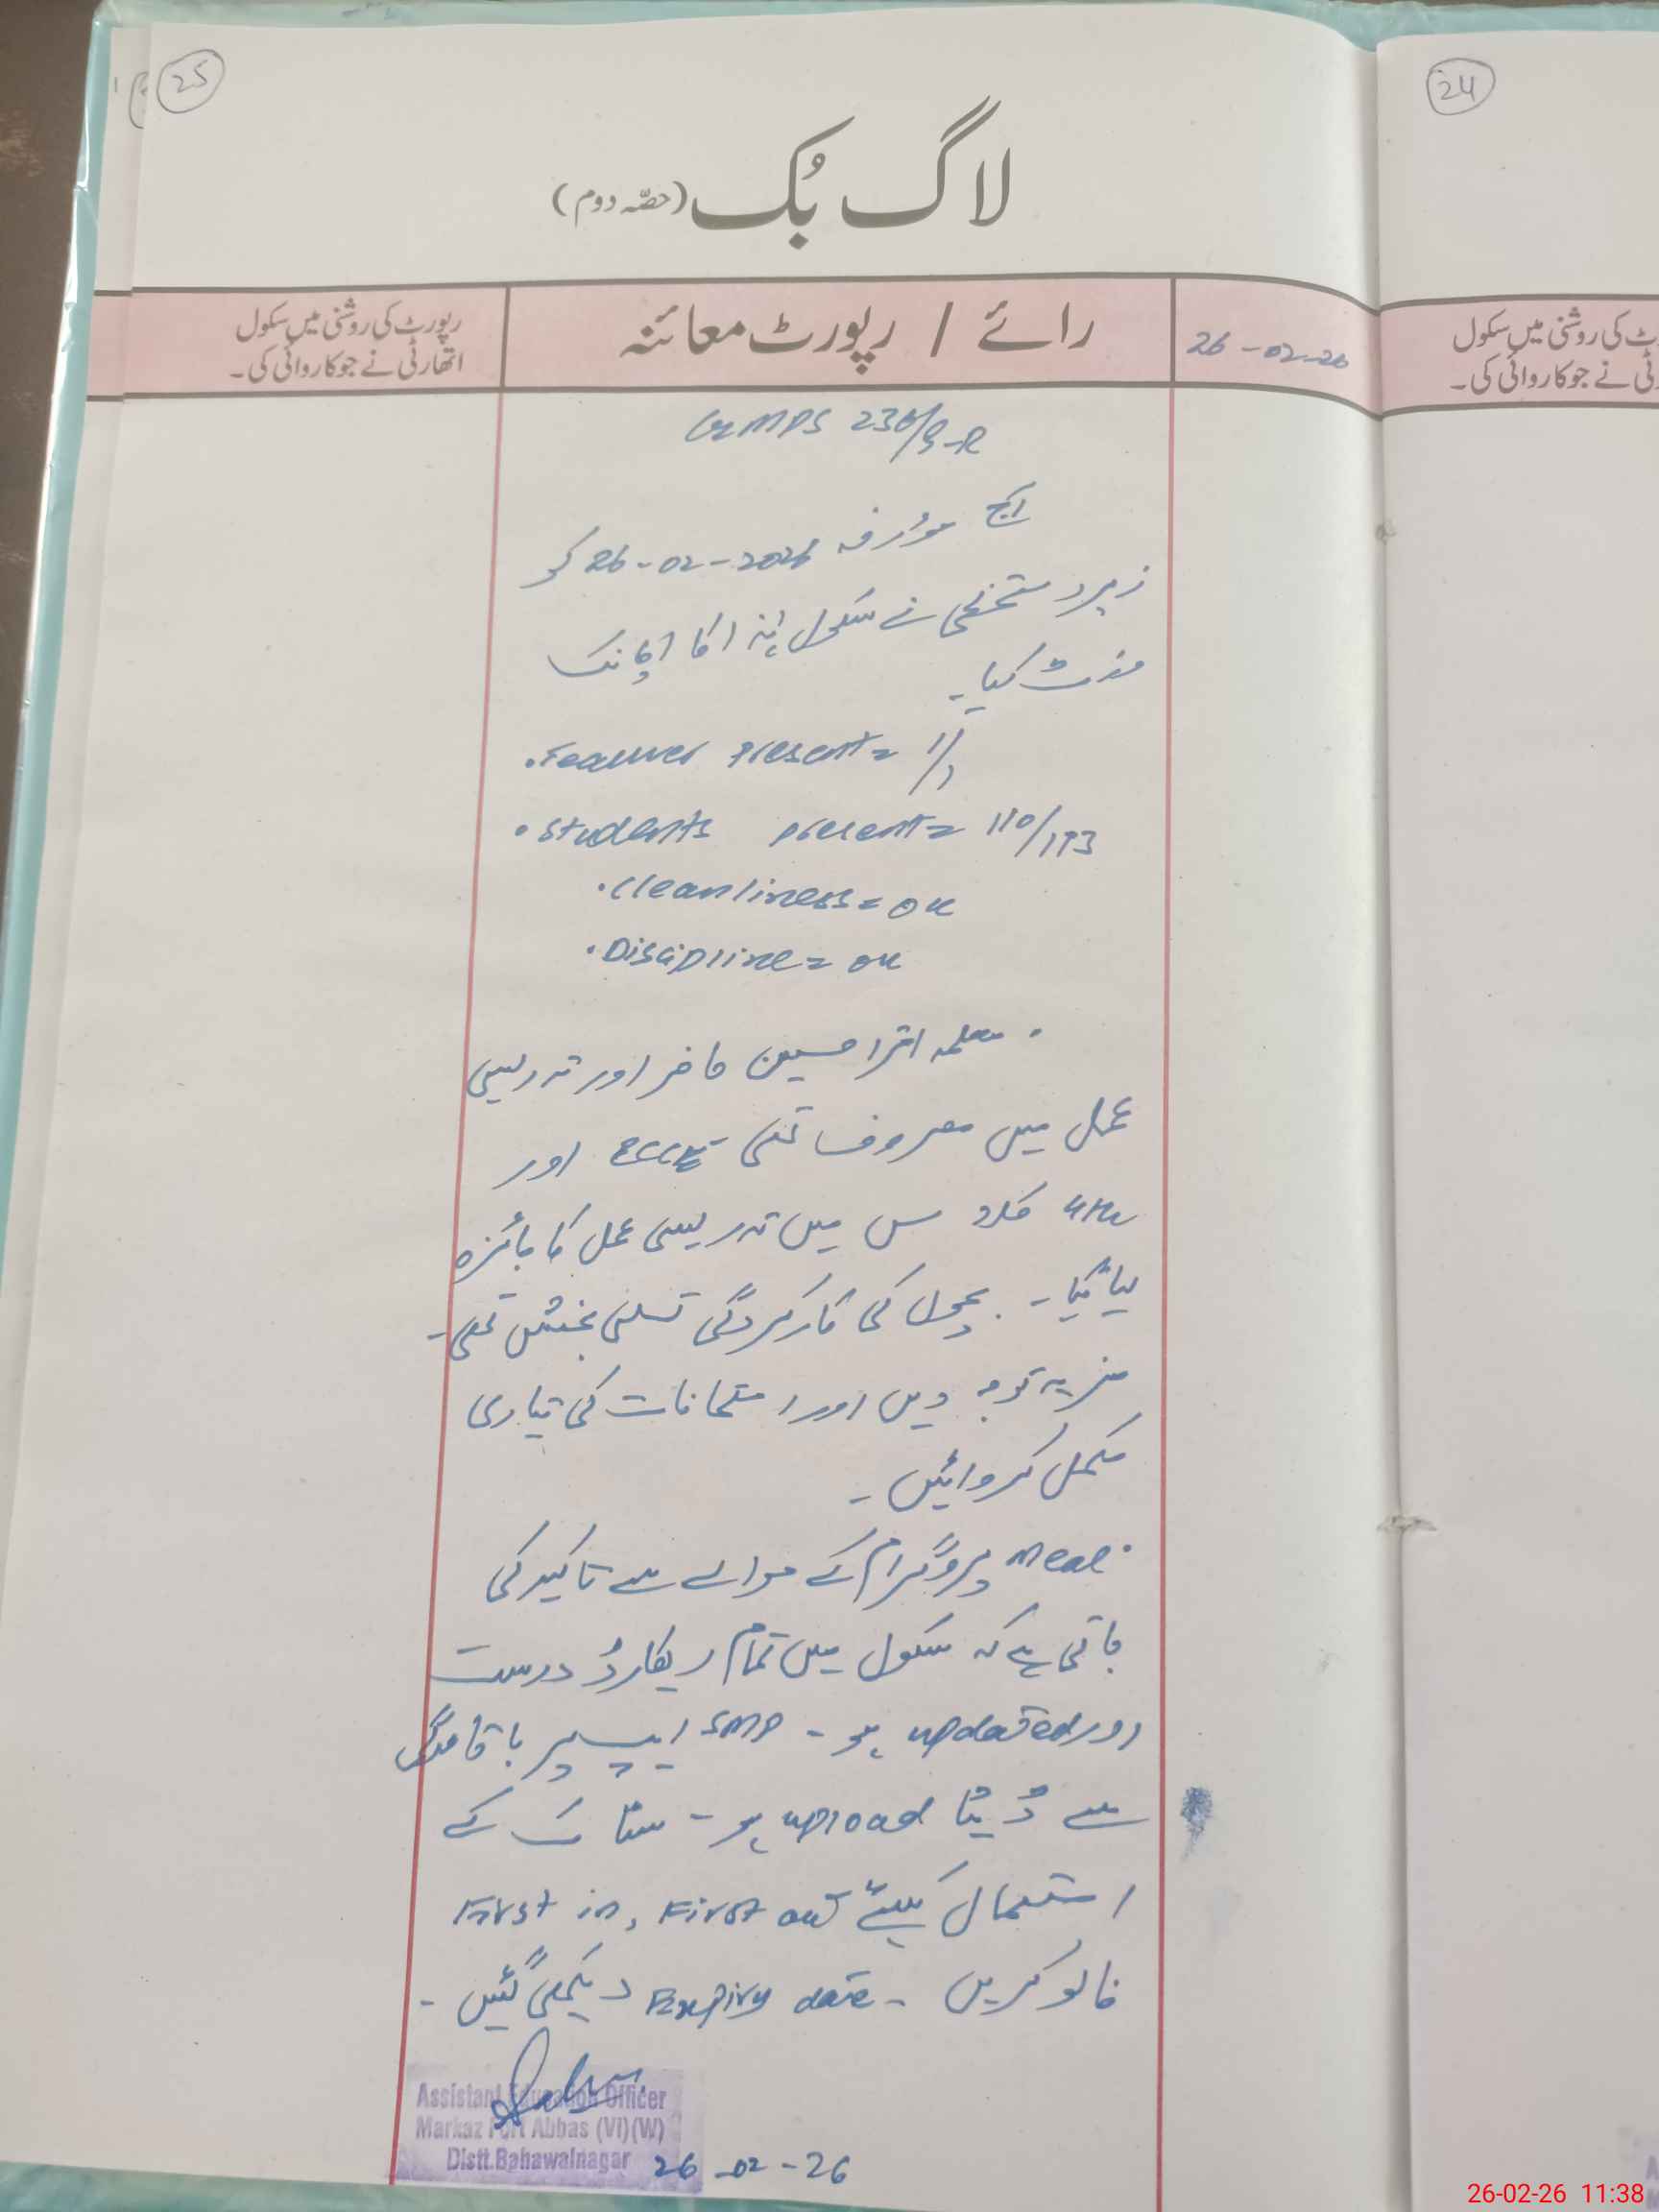 25
لاگ بُک (حصّہ دوم)
26-02-26
رائے / رپورٹ معائنہ
رپورٹ کی روشنی میں سکول
اتھارٹی نے جو کاروائی کی۔
GMPS 236/9-R
آج مورخہ 26-02-2026 کو
زیر دستخطی نے سکول ہذا کا اچانک
وزٹ کیا۔
. Teacher present = 1/1
. Students present = 110/173
. Cleanliness = ok
. Discipline = ok
. معلمہ اقرا حسین حاضر اور تدریسی
عمل میں مصروف تھی۔ ECCE اور
4th کلاس میں تدریسی عمل کا جائزہ
لیا گیا۔ بچوں کی کارکردگی تسلی بخش تھی۔
مزید توجہ دیں اور امتحانات کی تیاری
مکمل کروائیں۔
. Meal پروگرام کے حوالے سے تاکید کی
جاتی ہے کہ سکول میں تمام ریکارڈ درست
اور updated ہو۔ SMP ایپ پر باقاعدگی
سے ڈیٹا upload ہو۔ سٹاک کے
استعمال کیلئے First in, First out
فالو کریں۔ Expiry date دیکھی گئیں۔
Assistant Education Officer
Markaz Fort Abbas (VI)(W)
Distt.Bahawalnagar
26-02-26
24
رپورٹ کی روشنی میں سکول
نے جو کاروائی کی۔
26-02-26 11:38